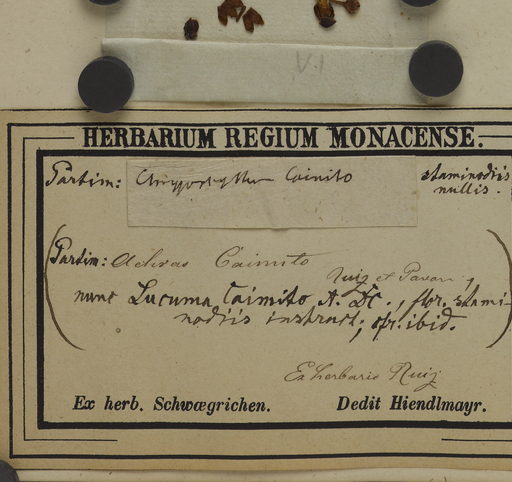 V.1
HERBARIUM REGIUM MONACENSE.
Partim: Chrysophyllum Cainito staminodiis
nullis.
Partim: Achras Caimito
Ruiz et Pavon;
nunc Lucuma Caimito A. DC., flor. stami-
nodiis instruct; cfr. ibid.
Ex herbario Ruiz
Ex herb. Schwægrichen. Dedit Hiendlmayr.